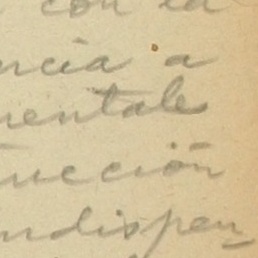 con la
ncia a
mentale
ucción
ndispen